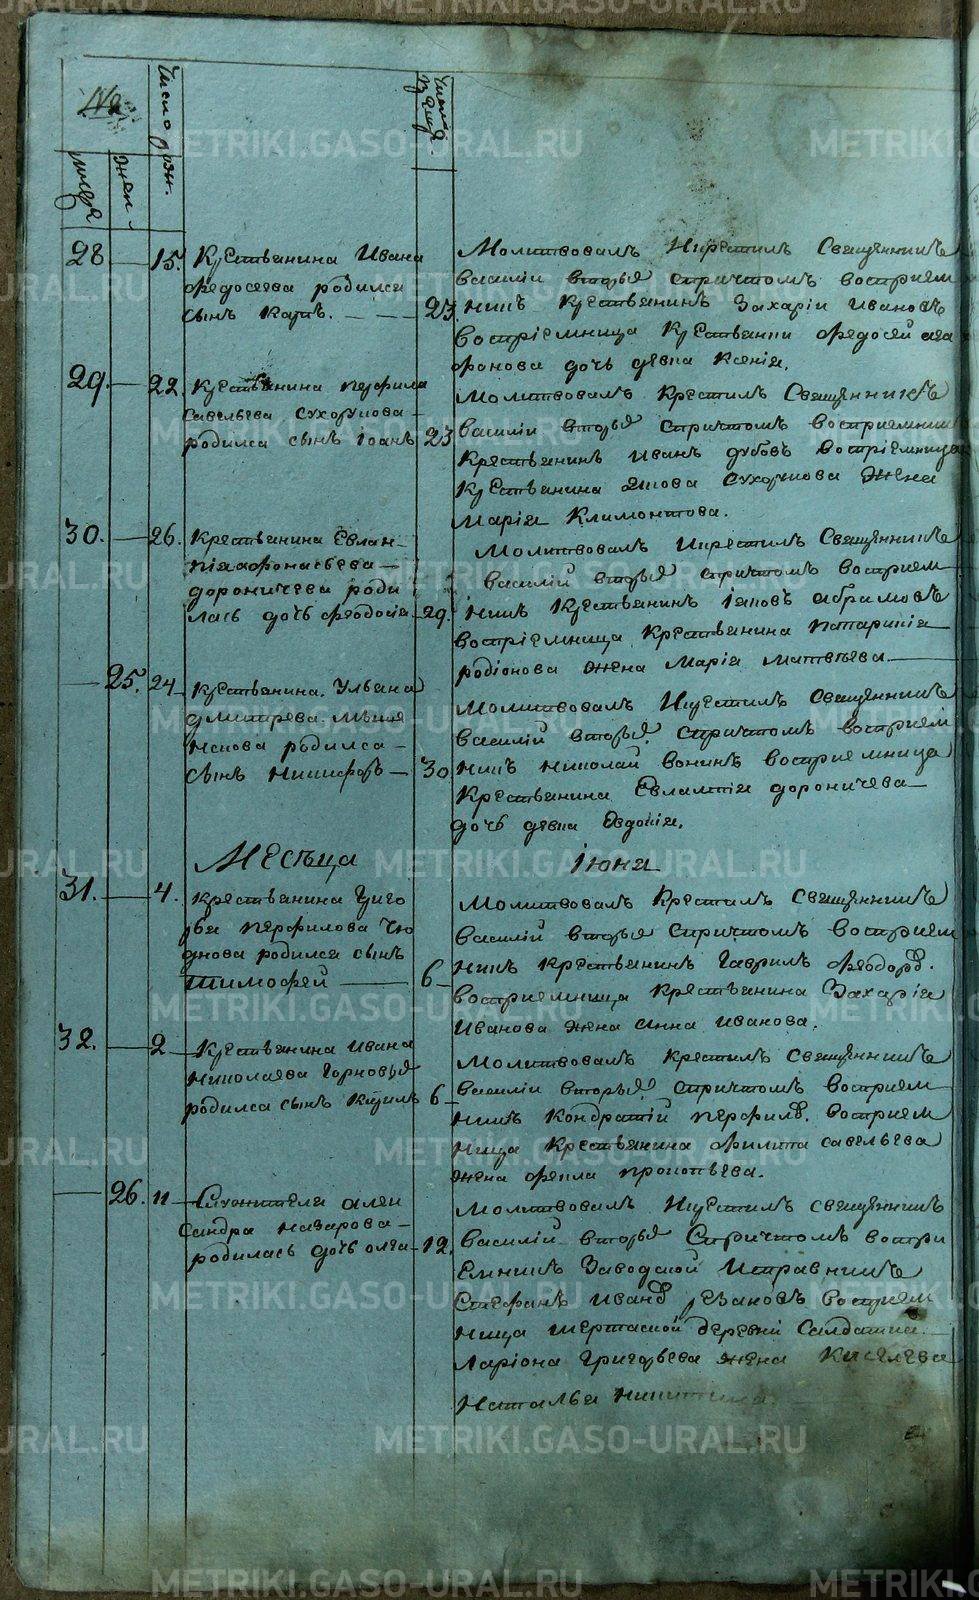 METRIKI.GASO-URAL.RU
№
Число рож.
муска
жен
Числа
28 15. Крестьянина Ивана
Федосеева родился
сынъ Карпъ. 23.
Молитвовалъ Икрестилъ Священникъ
василiи вторые спричтомъ восприем
никъ Крестьянинъ Захарiи Ивановъ
востріемница Крестьянки Федосеи ага
фонова дочь девка Ксенiя.
29. 22. Крестьянина перфила
Савельева сухорукова
родился сынъ iоанъ 23
Молитвовалъ Крестилъ Священникъ
василiи вторые спричтомъ восприемник
Крестьянинъ Иванъ дубовъ востріемница
Крестьянина якова сухорукова жена
Марiя Климонтова.
30. 26. Крестьянина Евлан
пiяафонасьева
дороничева роди
лась дочь Феодосiя 29.
Молитвовалъ Икрестилъ Священникъ
василiй вторые спричтомъ восприем
никъ Крестьянинъ Iаковъ абрамовъ
востріемница Крестьянина патарикiя
родiонова жена Марiя матвѣева
25. 24 Крестьянина. Ульяна
дмитрева
родился
сынъ Никифоръ 30
Молитвовалъ Икрестилъ священникъ
василiй вторые. спричтомъ восприем
никъ николай вонинъ восприемница
Крестьянина Евлампiя дороничева
дочь девка Евдокiя.
Месѣца Iюня
31. 4. крестьянина Григо
рья перфилова Чю
днова родился сынъ
тимофей 6
Молитвовалъ Крестилъ Священникъ
василiй вторые спричтомъ восприем
никъ крестьянинъ Гаврилъ феодоръ.
восприемница крестьянина Захарiя
Иванова жена анна иванова.
32. 2 Крестьянина ивана
николаева Горновые
родился сынъ Кирилъ 6
Молитвовалъ крестилъ священникъ
василiи вторые. спричтомъ восприем
никъ Кондратiй перфилов. восприем
ница Крестьянина филипа савельева
жена фекла прокопьева.
26. 11 Служителя алек
сандра назарова
родилась дочь олга 12.
Молитвовалъ Икрестилъ священникъ
василiй вторые Спричтомъ воспри
емникъ Заводской Исправникъ
Стефанъ иванов резановъ восприем
ница шерташской деревни Салдатки
Ларiона григорьева жена Киселева
наталья никитина.